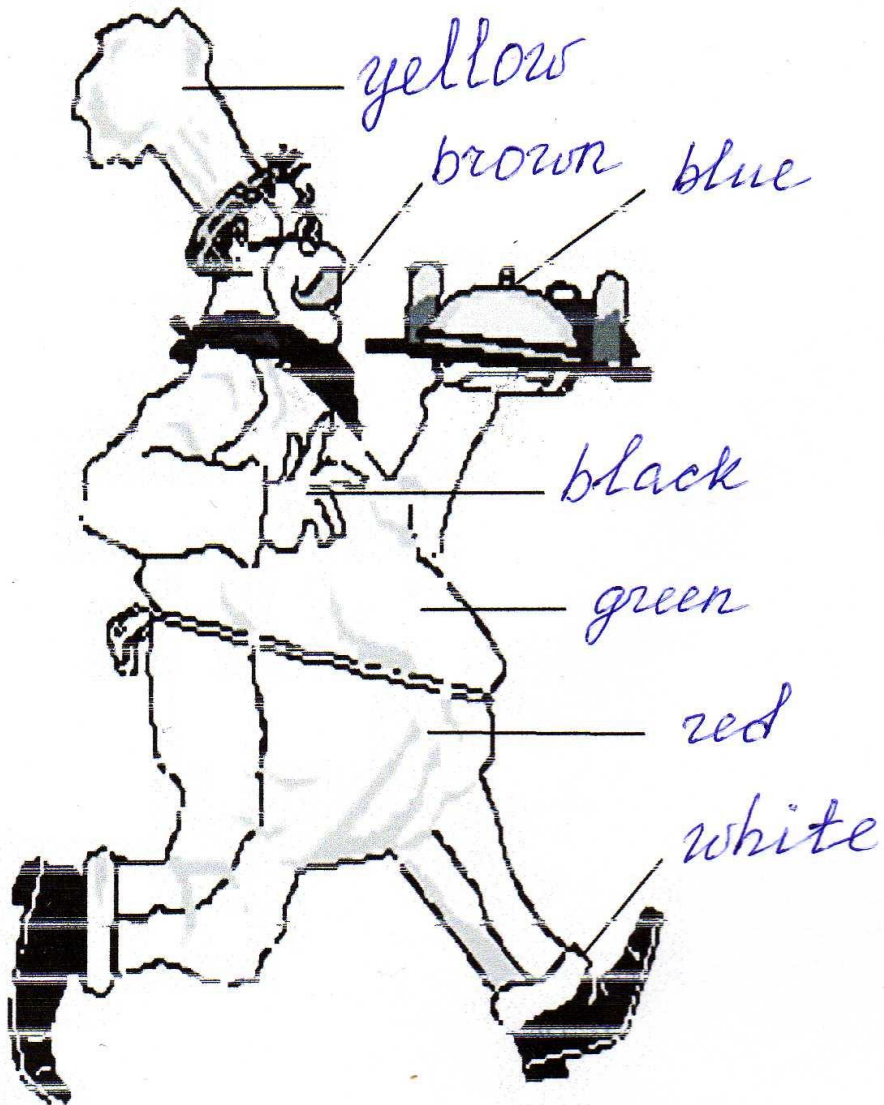 yellow
brown
blue
black
green
red
white